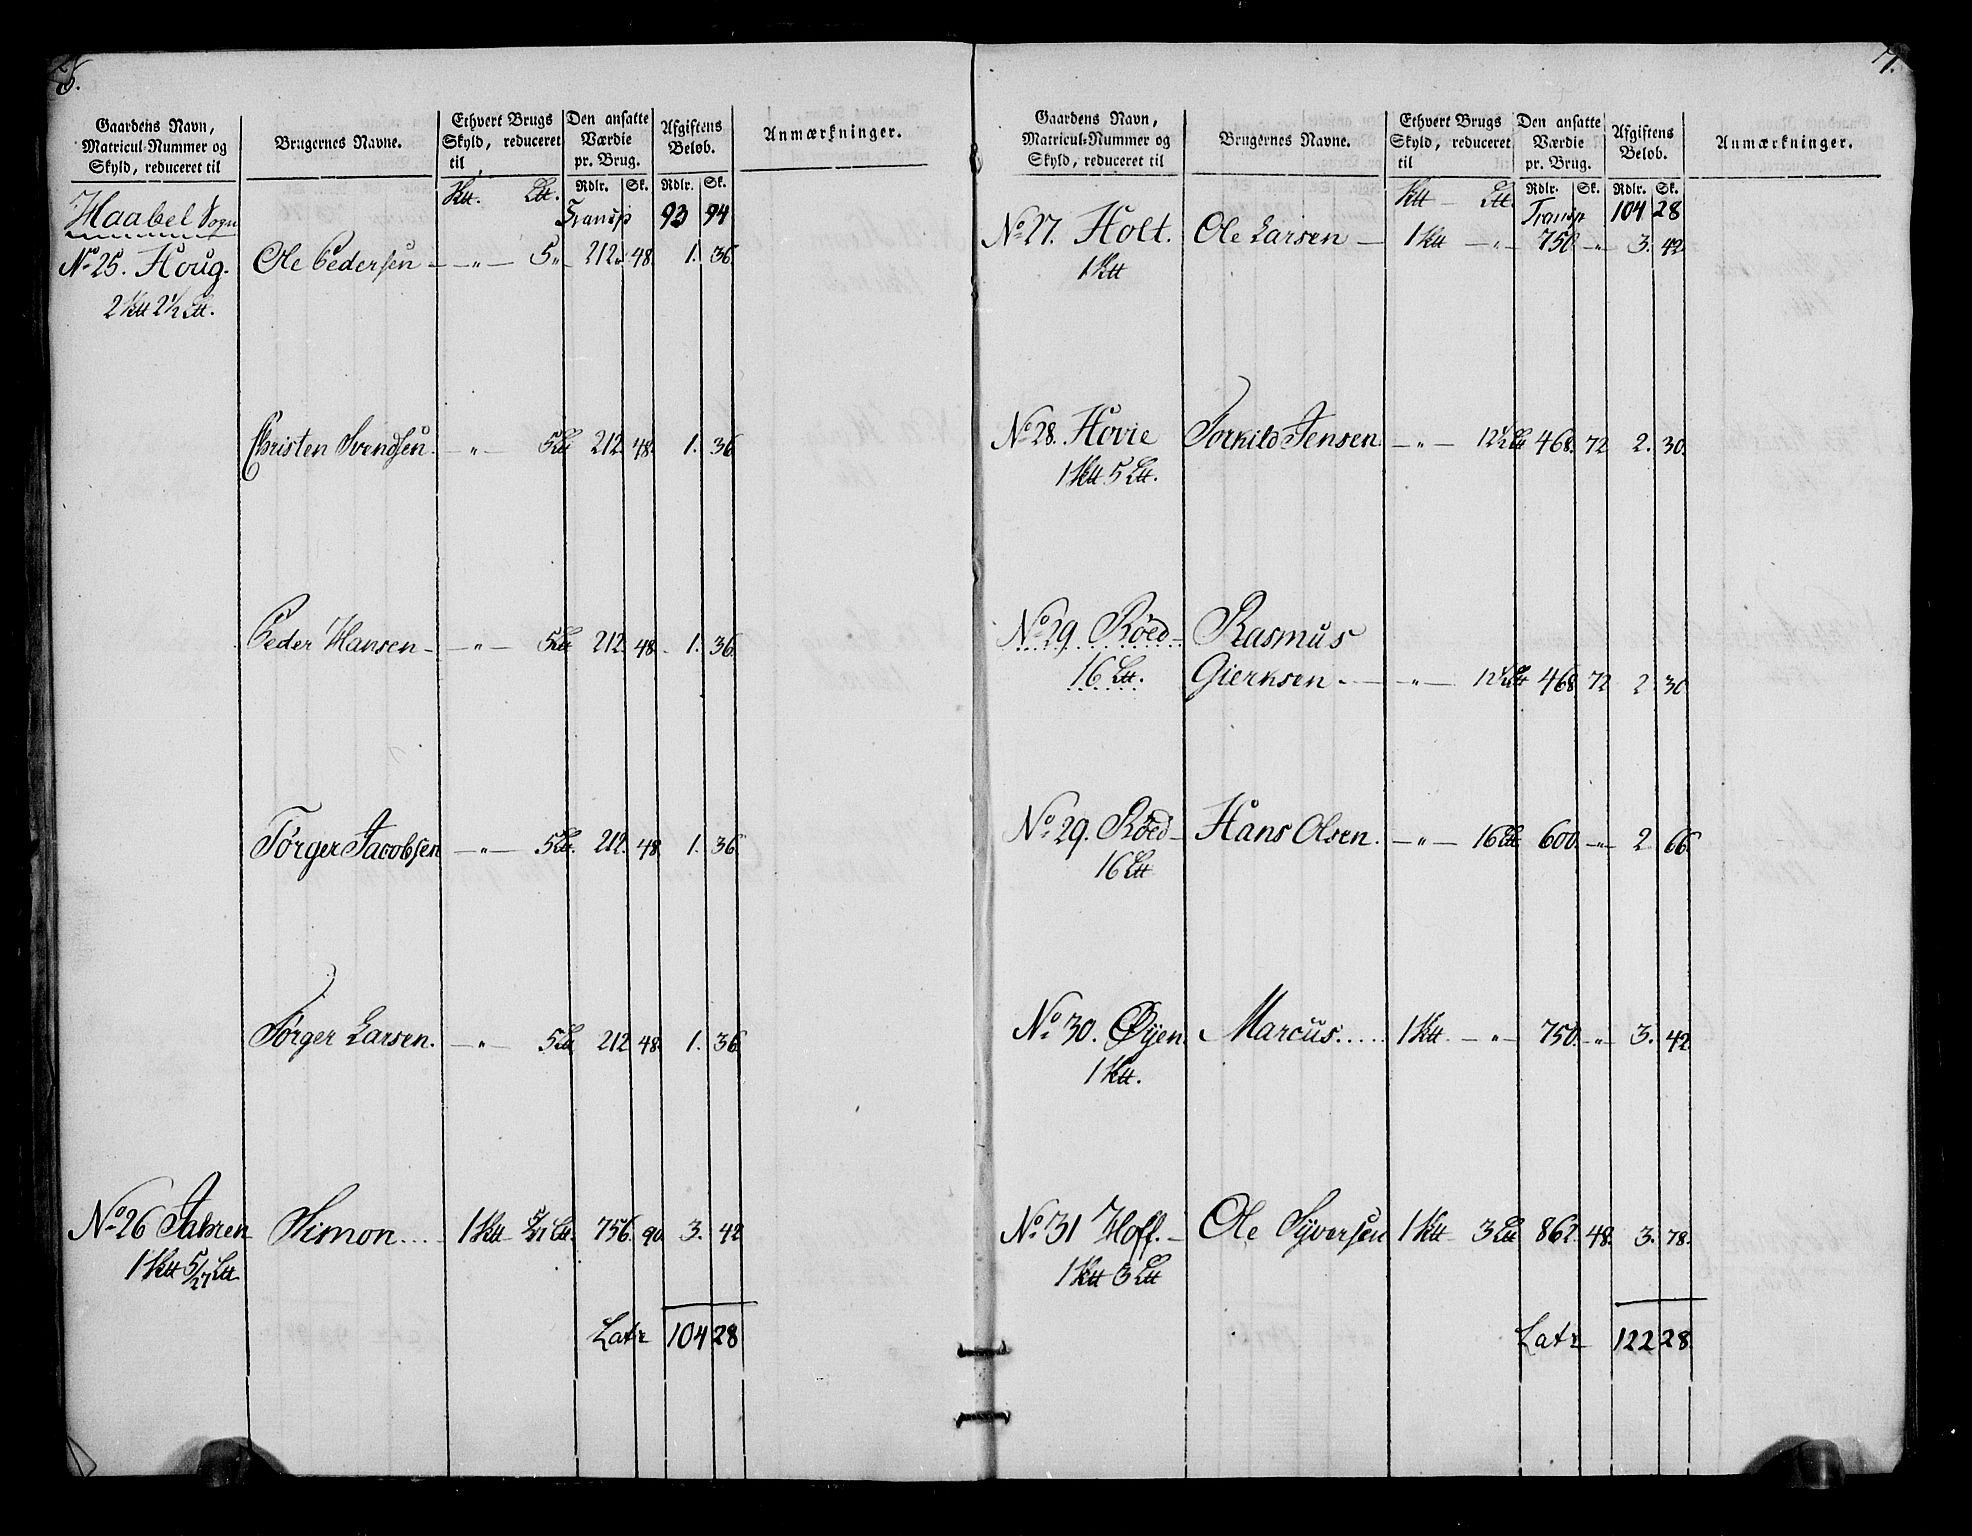 Gaardens Navn, Matricul-Nummer og Skyld, reduceret til | Brugernes Navne. | Ethvert Brugs Skyld, reduceret til | Den ansatte Værdie pr. Brug. | Afgiftens Beløb. | Anmærkninger.
Rdlr. Sk. Rdlr. Sk.
Haabel Sogn Transp 93 94
No 25. Houg. Ole Pedersen — „ — 5 „ 212. 48. 1. 36.
2 Ktt 2 1/2 Ltt.
Christen Svendsen. — „ — 5 Ltt 212. 48. 1. 36
Peder Hansen — „ — 5 Ltt 212. 48. 1. 36.
Tørger Jacobsen — „ — 5 Ltt. 212. 48. 1. 36.
Tørger Larsen. — „ — 5 Ltt 212 48. 1. 36
No 26 Jahren Simon.... 1 Ktt 5/21 Ltt. 756. 90. 3. 42
1 Ktt 5/21 Ltt.
Latr 104 28
7.
Gaardens Navn, Matricul-Nummer og Skyld, reduceret til | Brugernes Navne. | Ethvert Brugs Skyld, reduceret til | Den ansatte Værdie pr. Brug. | Afgiftens Beløb. | Anmærkninger.
Rdlr. Sk. Rdlr. Sk.
Ktt — Ltt. Transp 104 28
No 27. Holt. Ole Larsen — 1 Ktt — „ — 750. „ 3. 42
1 Ktt
No 28. Hovie Torkild Jensen — „ — 12 1/2 Ltt 468. 72 2. 30.
1 Ktt 5 Ltt.
No 29. Røed — Rasmus
16 Ltt. Gierksen. — „ — 12 1/2 Ltt 468 72 2. 30
No 29. Røed — Hans Olsen. — „ — 16 Ltt 600. „ 2 66.
16 Ltt
No 30. Øyen Marcus..... 1 Ktt. — „ — 750. „ 3. 42
1 Ktt.
No 31 Hoff. — Ole Syversen 1 Ktt 3 Ltt 862. 48. 3. 78.
1 Ktt 3 Ltt
Latr 122 28.